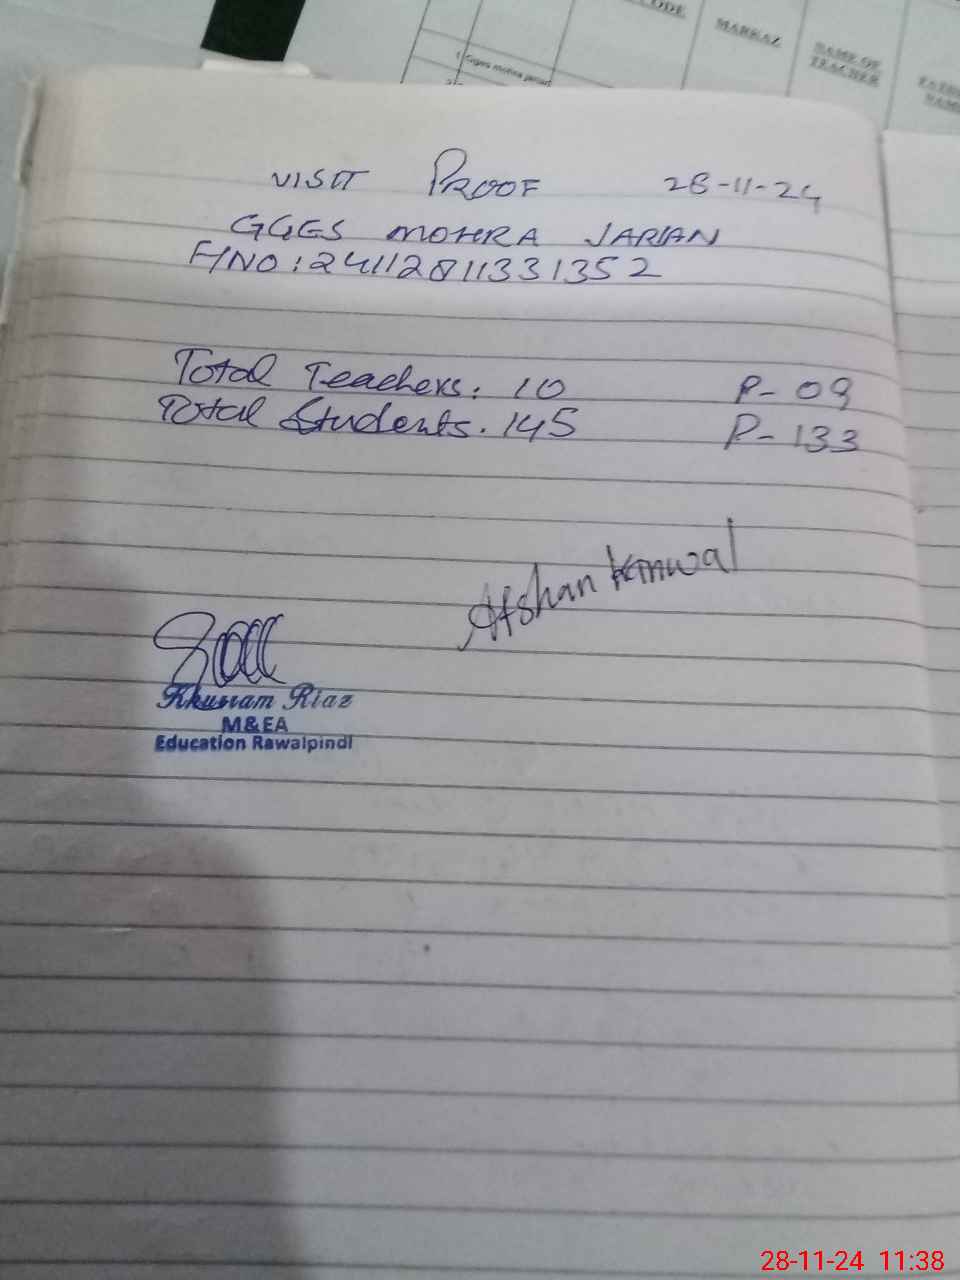 CODE
MARKAZ
NAME OF
TEACHER
1 Gges mohra jarian
VISIT PROOF 28-11-24
GGES MOHRA JARIAN
F/NO: 24112811331352
Total Teachers: 10 P- 09
Total Students. 145 P- 133
Afshan Kanwal
Khurram Riaz
M&EA
Education Rawalpindi
28-11-24 11:38